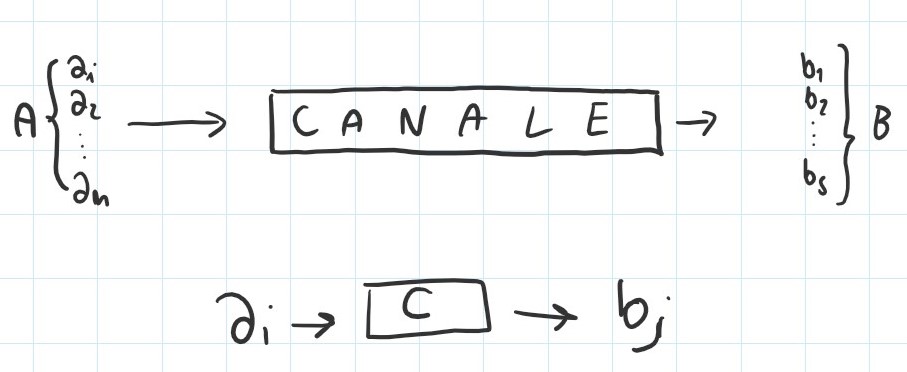 a_i
a_2
⋮
a_n
A
→
CANALE
→
b_1
b_2
⋮
b_s
B
a_i → C → b_j